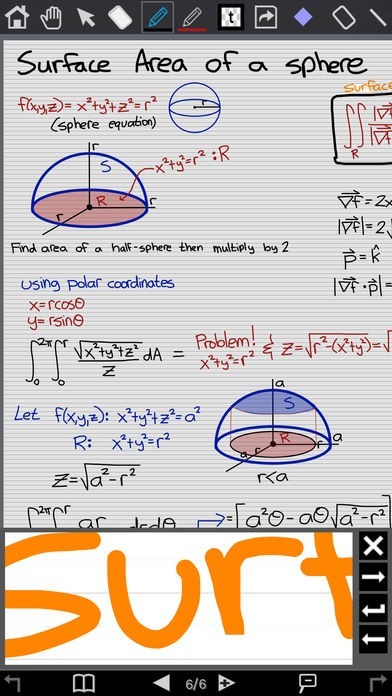 t
Surface Area of a sphere
surface
f(x,y,z)= x²+y²+z²=r²
(sphere equation)
r
∬ |∇f|
R |∇f
r
S
x²+y²=r² :R
R
r
r
∇f = 2x
|∇f| = 2
p = k
|∇f·p| =
Find area of a half-sphere then multiply by 2
using polar coordinates
x=rcosθ
y=rsinθ
∫₀^2π ∫₀^r √x²+y²+z² / z dA =
Problem!
x²+y²=r² & z=√r²-(x²+y²) = √
Let f(x,y,z): x²+y²+z²=a²
R: x²+y²=r²
z=√a²-r²
a
S
R
r
a
a
r
r<a
∫^2π ∫^r ar drdθ
=[a²θ-aθ√a²-r²]
Surf
6/6